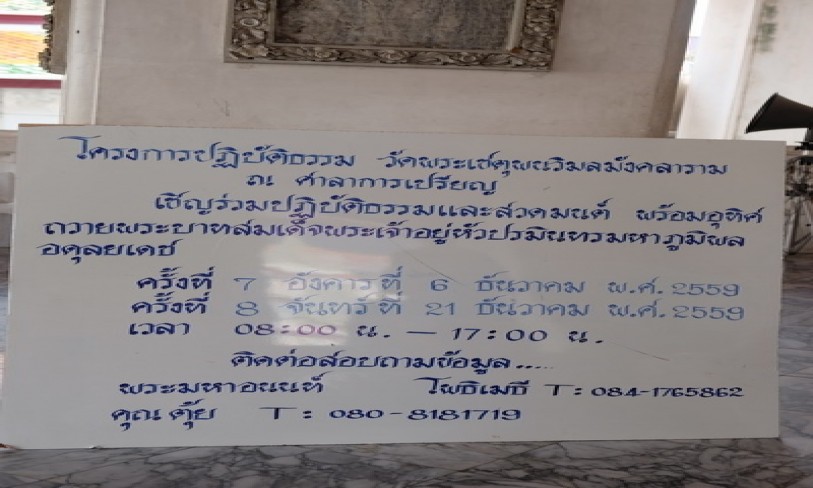 โครงการปฏิบัติธรรม วัดพระเชตุพนวิมลมังคลาราม
ณ ศาลาการเปรียญ
เชิญร่วมปฏิบัติธรรมและสวดมนต์ พร้อมอุทิศ
ถวายพระบาทสมเด็จพระเจ้าอยู่หัวปรมินทรมหาภูมิพล
อดุลยเดช
ครั้งที่ 7 อังคารที่ 6 ธันวาคม พ.ศ. 2559
ครั้งที่ 8 จันทร์ที่ 21 ธันวาคม พ.ศ. 2559
เวลา 08:00 น. – 17:00 น.
ติดต่อสอบถามข้อมูล.....
พระมหาอนนท์ โพธิเมธี T : 084-1765862
คุณ ตุ้ย T : 080-8181719